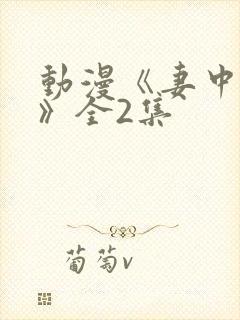 動漫《妻中
》全2集
葡萄v